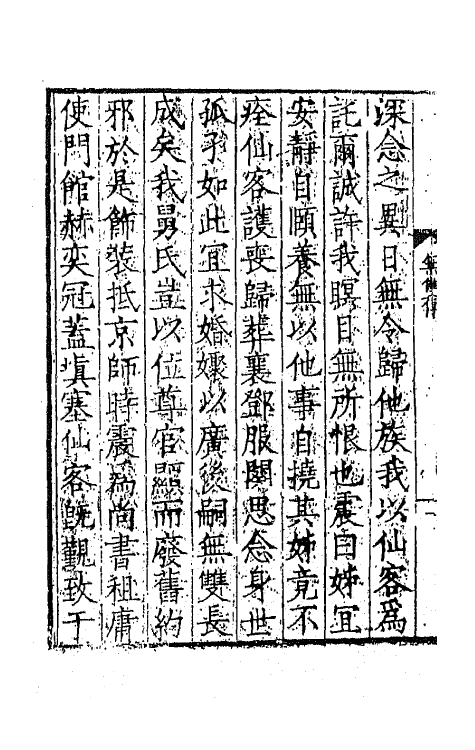 深念之異日無令歸他族我以仙客為
託爾誠許我瞑目無所恨也震曰姊宜
安靜自頤養無以他事自撓其姊竟不
痊仙客護喪歸葬襄鄧服闋思念身世
孤孑如此宜求婚娶以廣後嗣無雙長
成矣我舅氏豈以位尊官顯而廢舊約
邪於是飾裝抵京師時震為尚書租庸
使門館赫奕冠蓋填塞仙客既覲致于